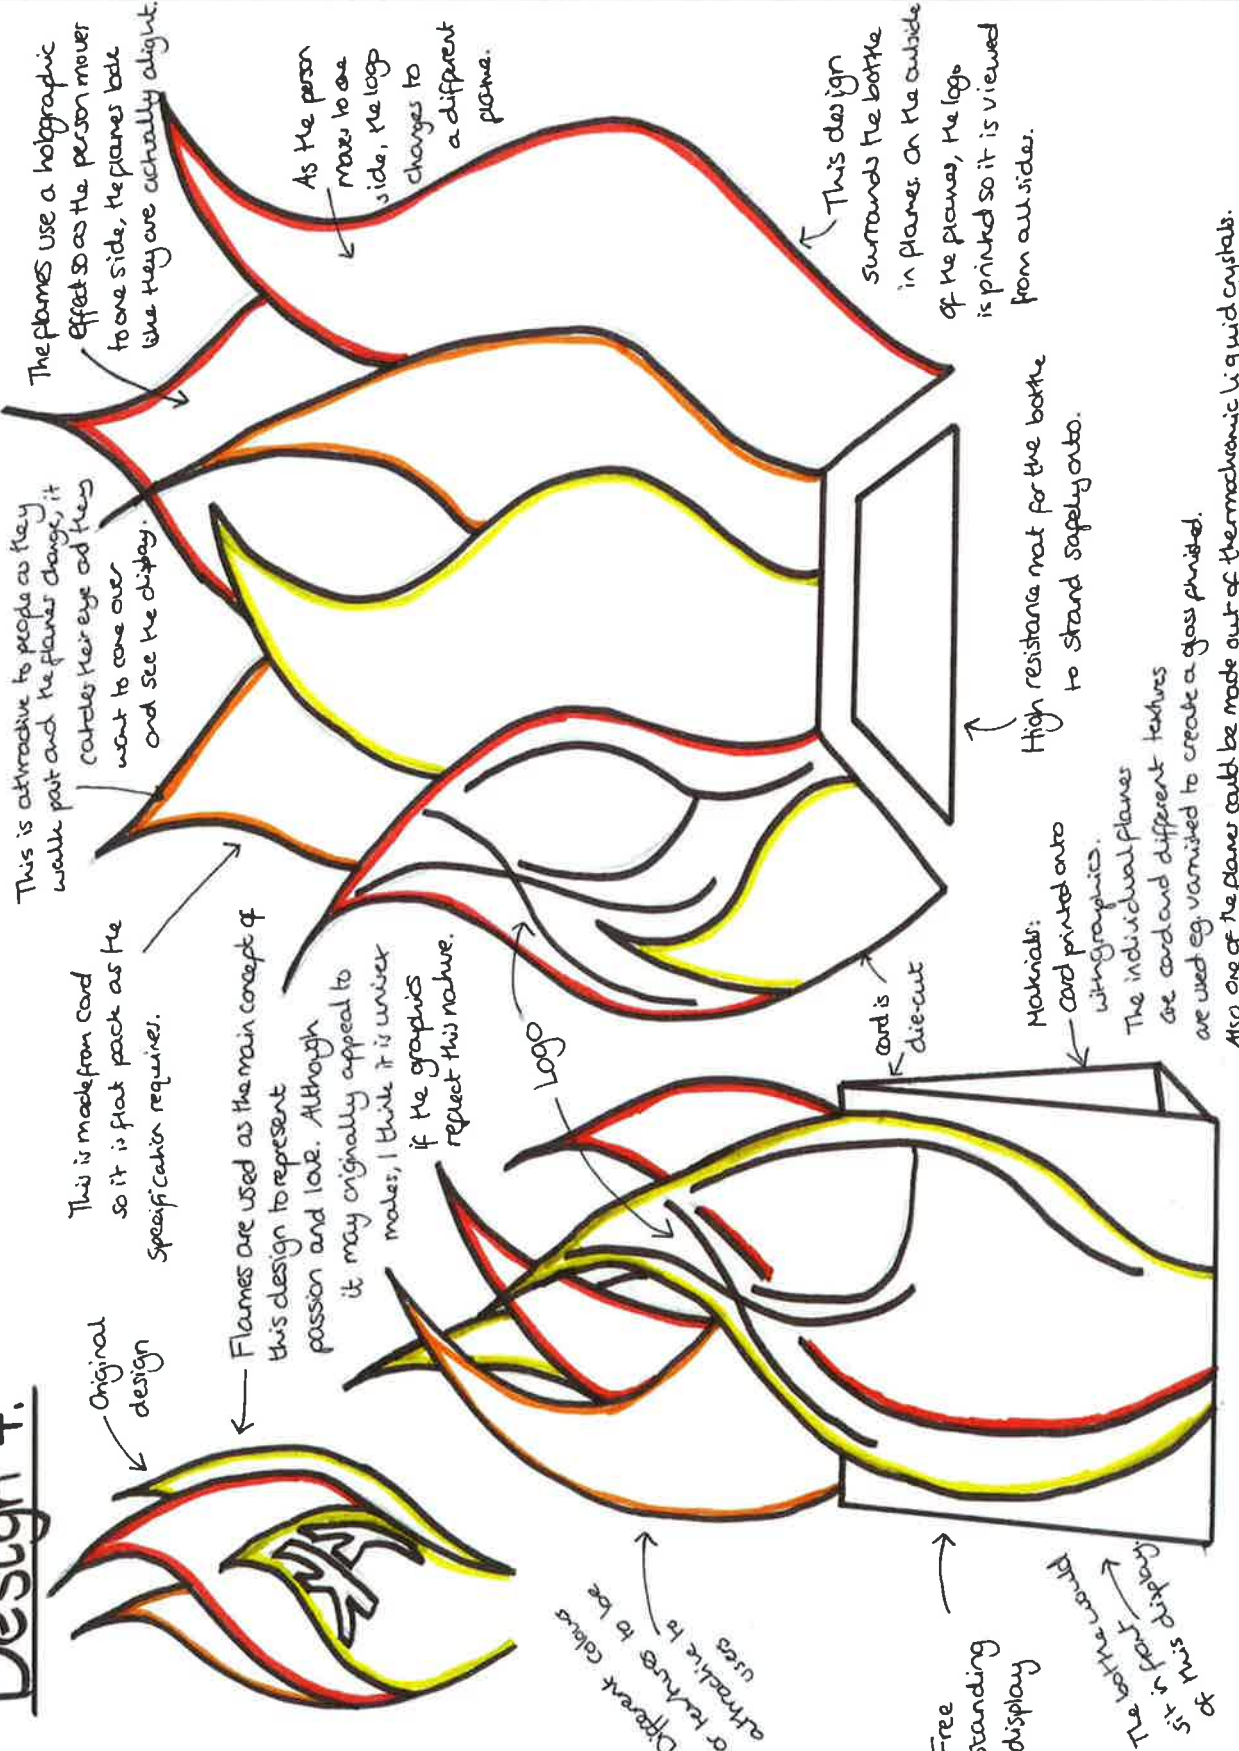 Design 4.
Original
design
Flames are used as the main concept of
this design to represent
passion and love. Although
it may originally appeal to
males, I think it is unisex
if the graphics
reflect this nature.
This is made from card
so it is flat pack as the
specification requires.
This is attractive to people as they
walk past and the flames change, it
catches their eye and they
want to come over
and see the display.
The flames use a holographic
effect so as the person moves
to one side, the flames look
like they are actually alight.
As the person
moves to one
side, the logo
changes to
a different
flame.
This design
surrounds the bottle
in flames. On the outside
of the flames, the logo
is printed so it is viewed
from all sides.
High resistance mat for the bottle
to stand safely onto.
Logo
card is
die-cut
Materials:
card printed onto
with graphics.
The individual flames
are card and different textures
are used eg. varnished to create a gloss finished.
Also one of the flames could be made out of thermochromic liquid crystals.
Different colours
or textures to be
attractive to
users
Free
standing
display
The bottle would
sit in front
of this display.